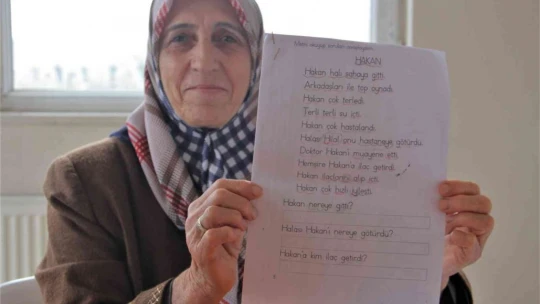 Metni okuyup soruları cevaplayalım.
HAKAN
Hakan halı sahaya gitti.
Arkadaşları ile top oynadı.
Hakan çok terledi.
Terli terli su içti.
Hakan çok hastalandı.
Halası Hilal onu hastaneye götürdü.
Doktor Hakan'ı muayene etti.
Hemşire Hakan'a ilaç getirdi.
Hakan ilaçlarını alıp içti.
Hakan çok hızlı iyileşti.
Hakan nereye gitti?
Halası Hakan'ı nereye götürdü?
Hakan'a kim ilaç getirdi?